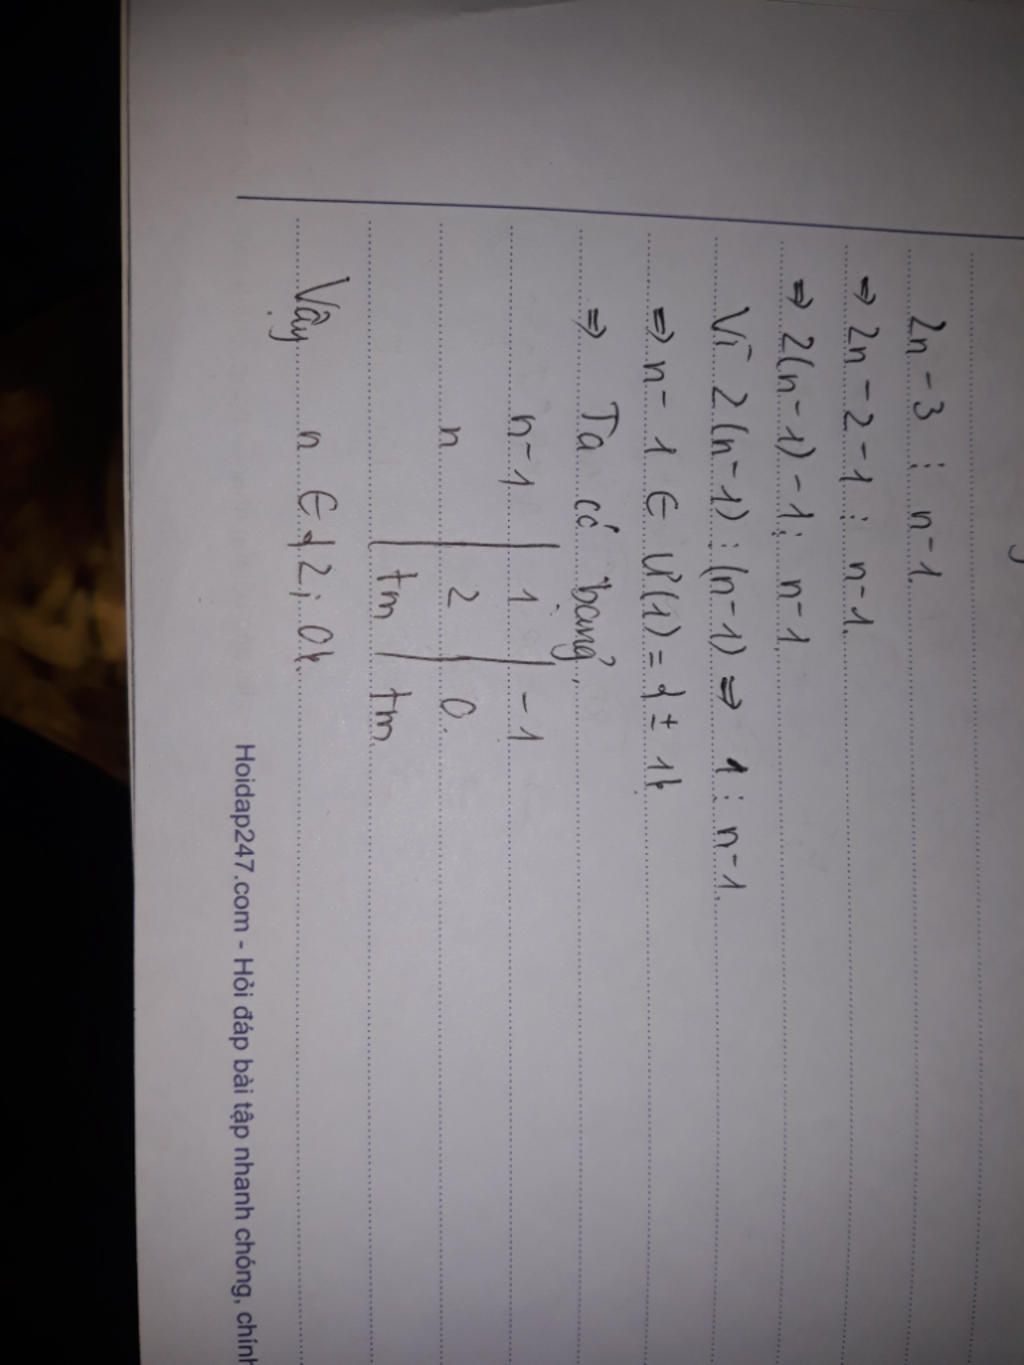 2n - 3 ⋮ n - 1
⇒ 2n - 2 - 1 ⋮ n - 1
⇒ 2(n - 1) - 1 ⋮ n - 1
Vì 2(n - 1) ⋮ (n - 1) ⇒ 1 ⋮ n - 1
⇒ n - 1 ∈ Ư(1) = {± 1}
⇒ Ta có bảng
n - 1 | 1 | - 1
n | 2 | 0
| tm | tm
Vậy n ∈ {2; 0}
Hoidap247.com - Hỏi đáp bài tập nhanh chóng, chính